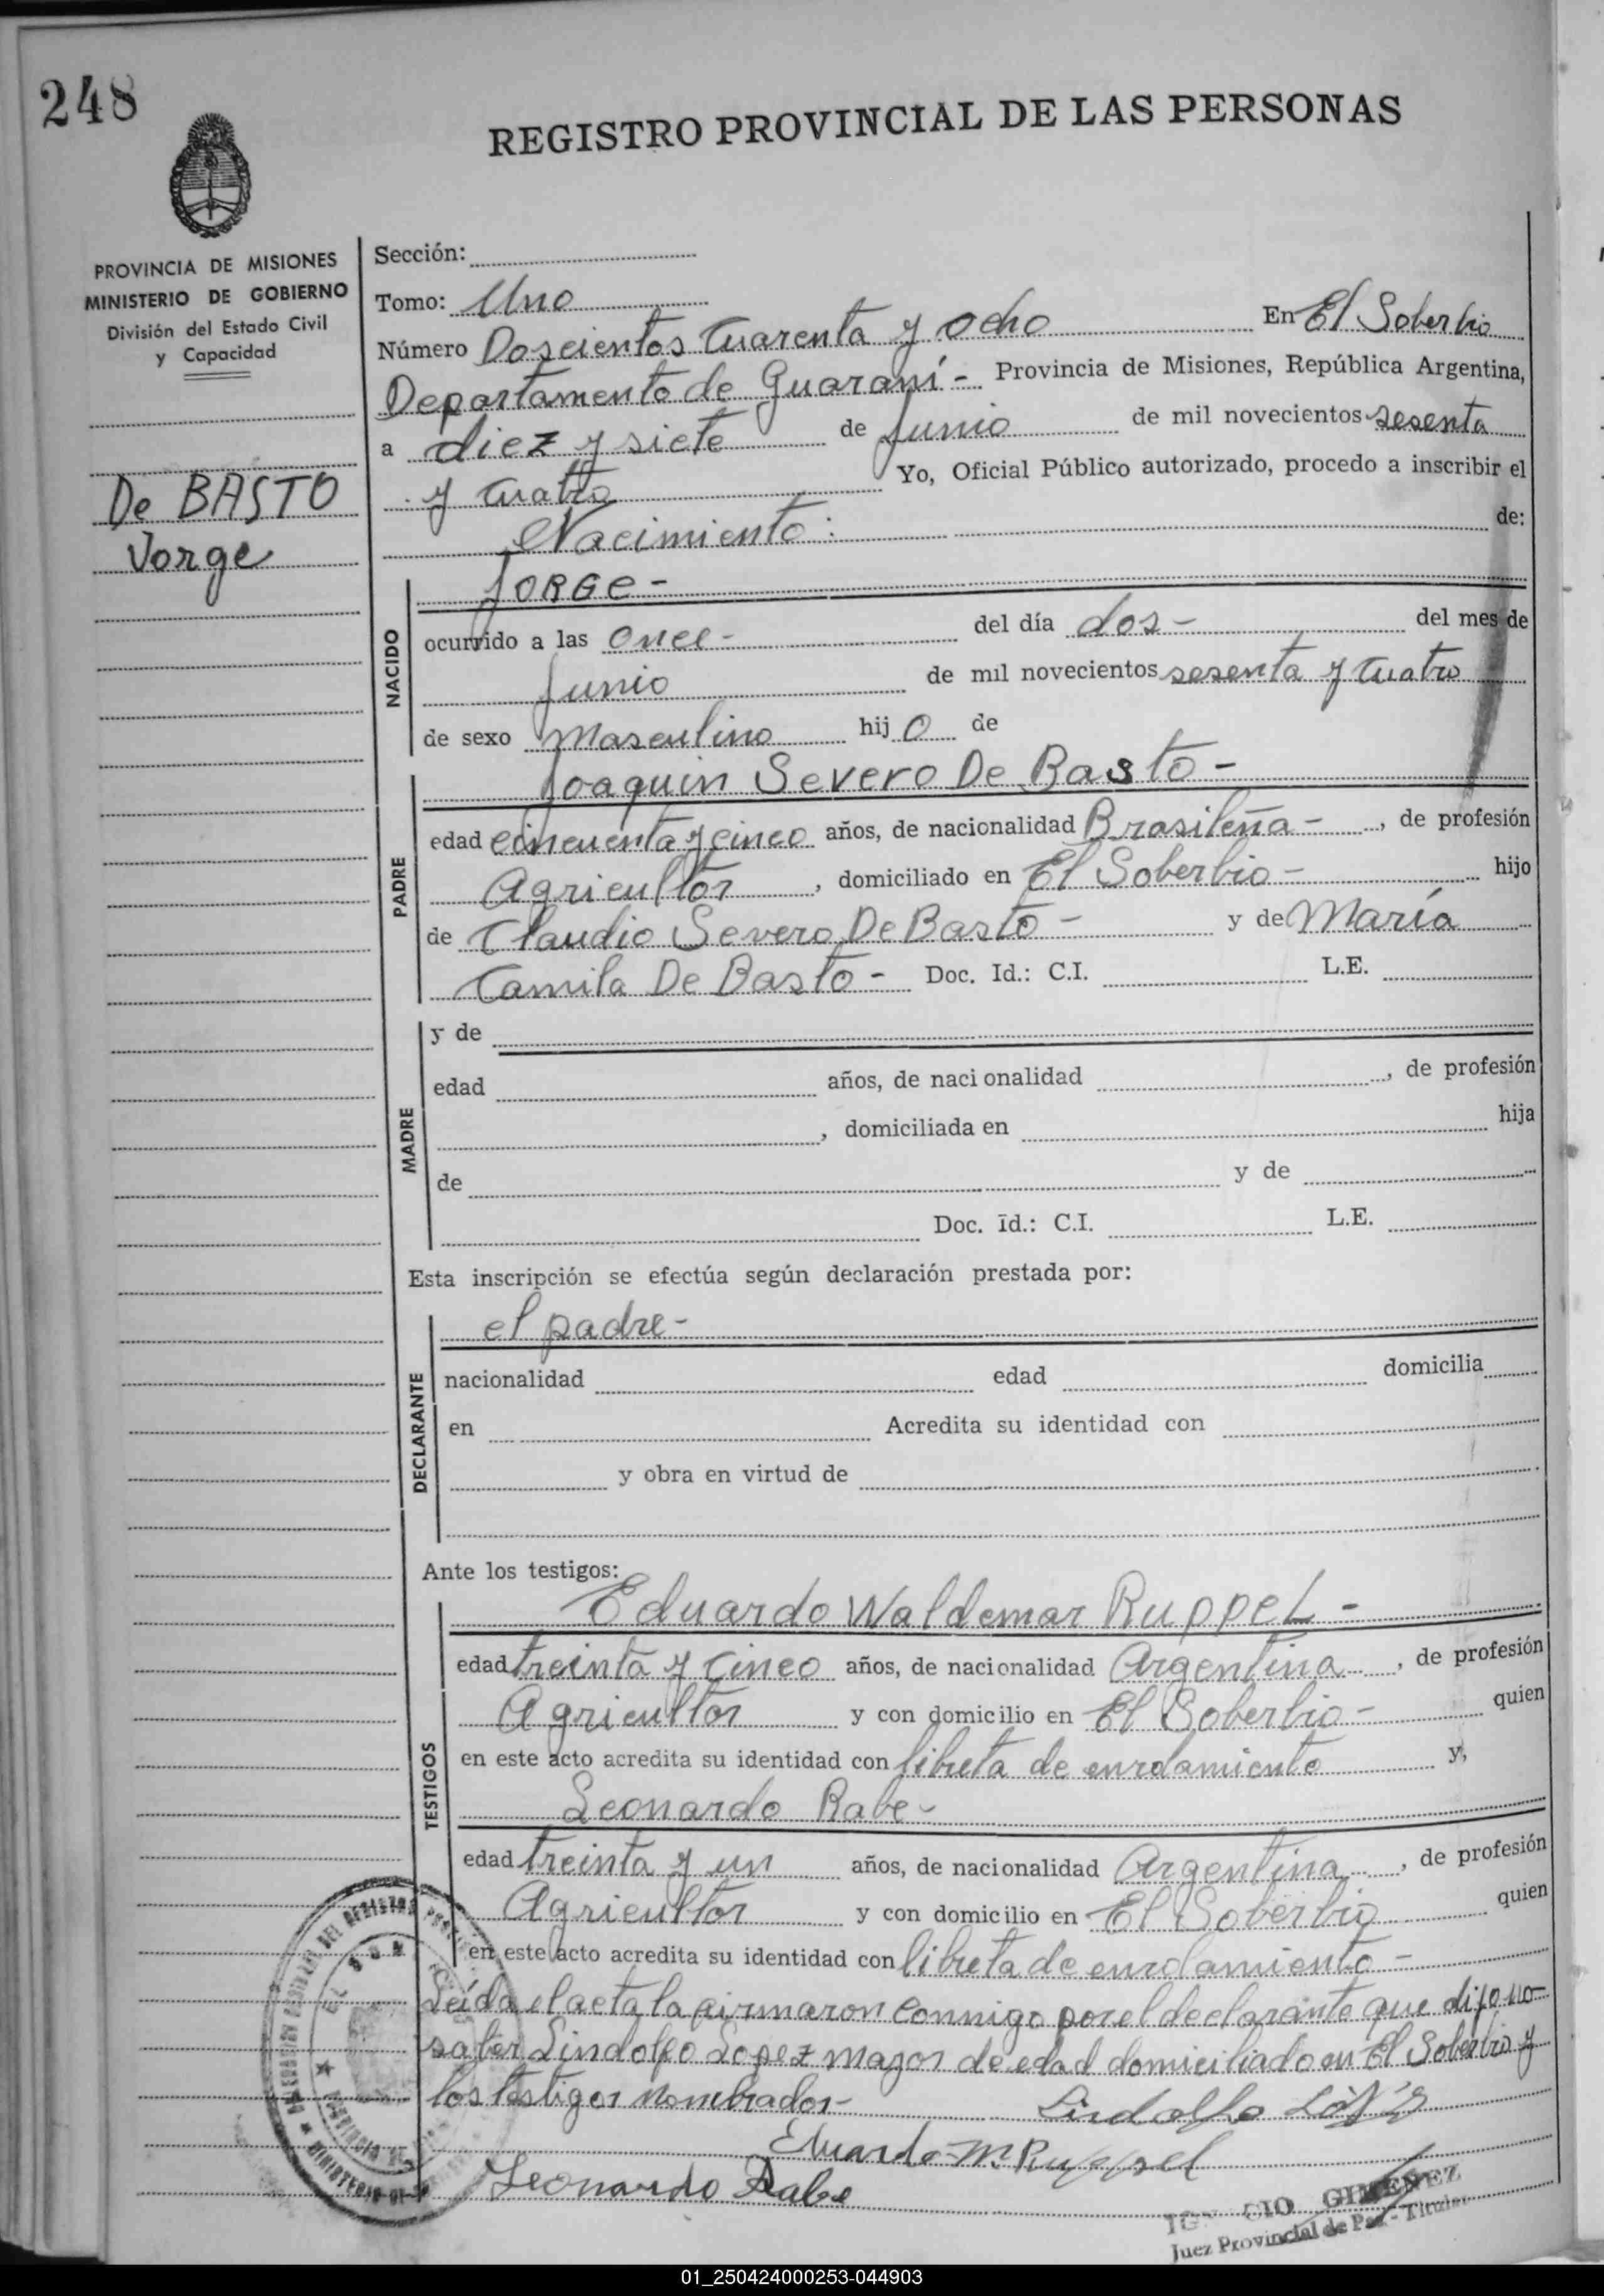 248
REGISTRO PROVINCIAL DE LAS PERSONAS
PROVINCIA DE MISIONES
MINISTERIO DE GOBIERNO
División del Estado Civil
y Capacidad
De BASTO
Jorge
Sección:
Tomo: Uno
Número Doscientos Cuarenta y Ocho En El Soberbio
Departamento de Guaraní - Provincia de Misiones, República Argentina,
a diez y siete de Junio de mil novecientos sesenta
y Cuatro Yo, Oficial Público autorizado, procedo a inscribir el
Nacimiento: de:
NACIDO
JORGE -
ocurrido a las once - del día dos - del mes de
Junio de mil novecientos sesenta y Cuatro
de sexo Masculino hij o de
PADRE
Joaquin Severo De Basto -
edad cincuenta y cinco años, de nacionalidad Brasileña - , de profesión
Agricultor , domiciliado en El Soberbio - hijo
de Claudio Severo De Basto - y de María
Camila De Basto - Doc. Id.: C.I. L.E.
MADRE
y de
edad años, de nacionalidad , de profesión
, domiciliada en hija
de y de
Doc. Id.: C.I. L.E.
Esta inscripción se efectúa según declaración prestada por:
DECLARANTE
el padre -
nacionalidad edad domicilia
en Acredita su identidad con
y obra en virtud de
Ante los testigos:
TESTIGOS
Eduardo Waldemar Ruppel -
edad treinta y Cinco años, de nacionalidad Argentina , de profesión
Agricultor y con domicilio en El Soberbio - quien
en este acto acredita su identidad con libreta de enrolamiento y,
Leonardo Rabe -
edad treinta y un años, de nacionalidad Argentina , de profesión
Agricultor y con domicilio en El Soberbio quien
en este acto acredita su identidad con libreta de enrolamiento -
Leída el acta la firmaron conmigo por el declarante que dijo no
saber Lindolfo Lopez mayor de edad domiciliado en El Soberbio y
los testigos nombrados -
Lindolfo
Eduardo Ruppel
Leonardo Rabe
GIMENEZ
Juez Provincial de Paz - Titular
01_250424000253-044903